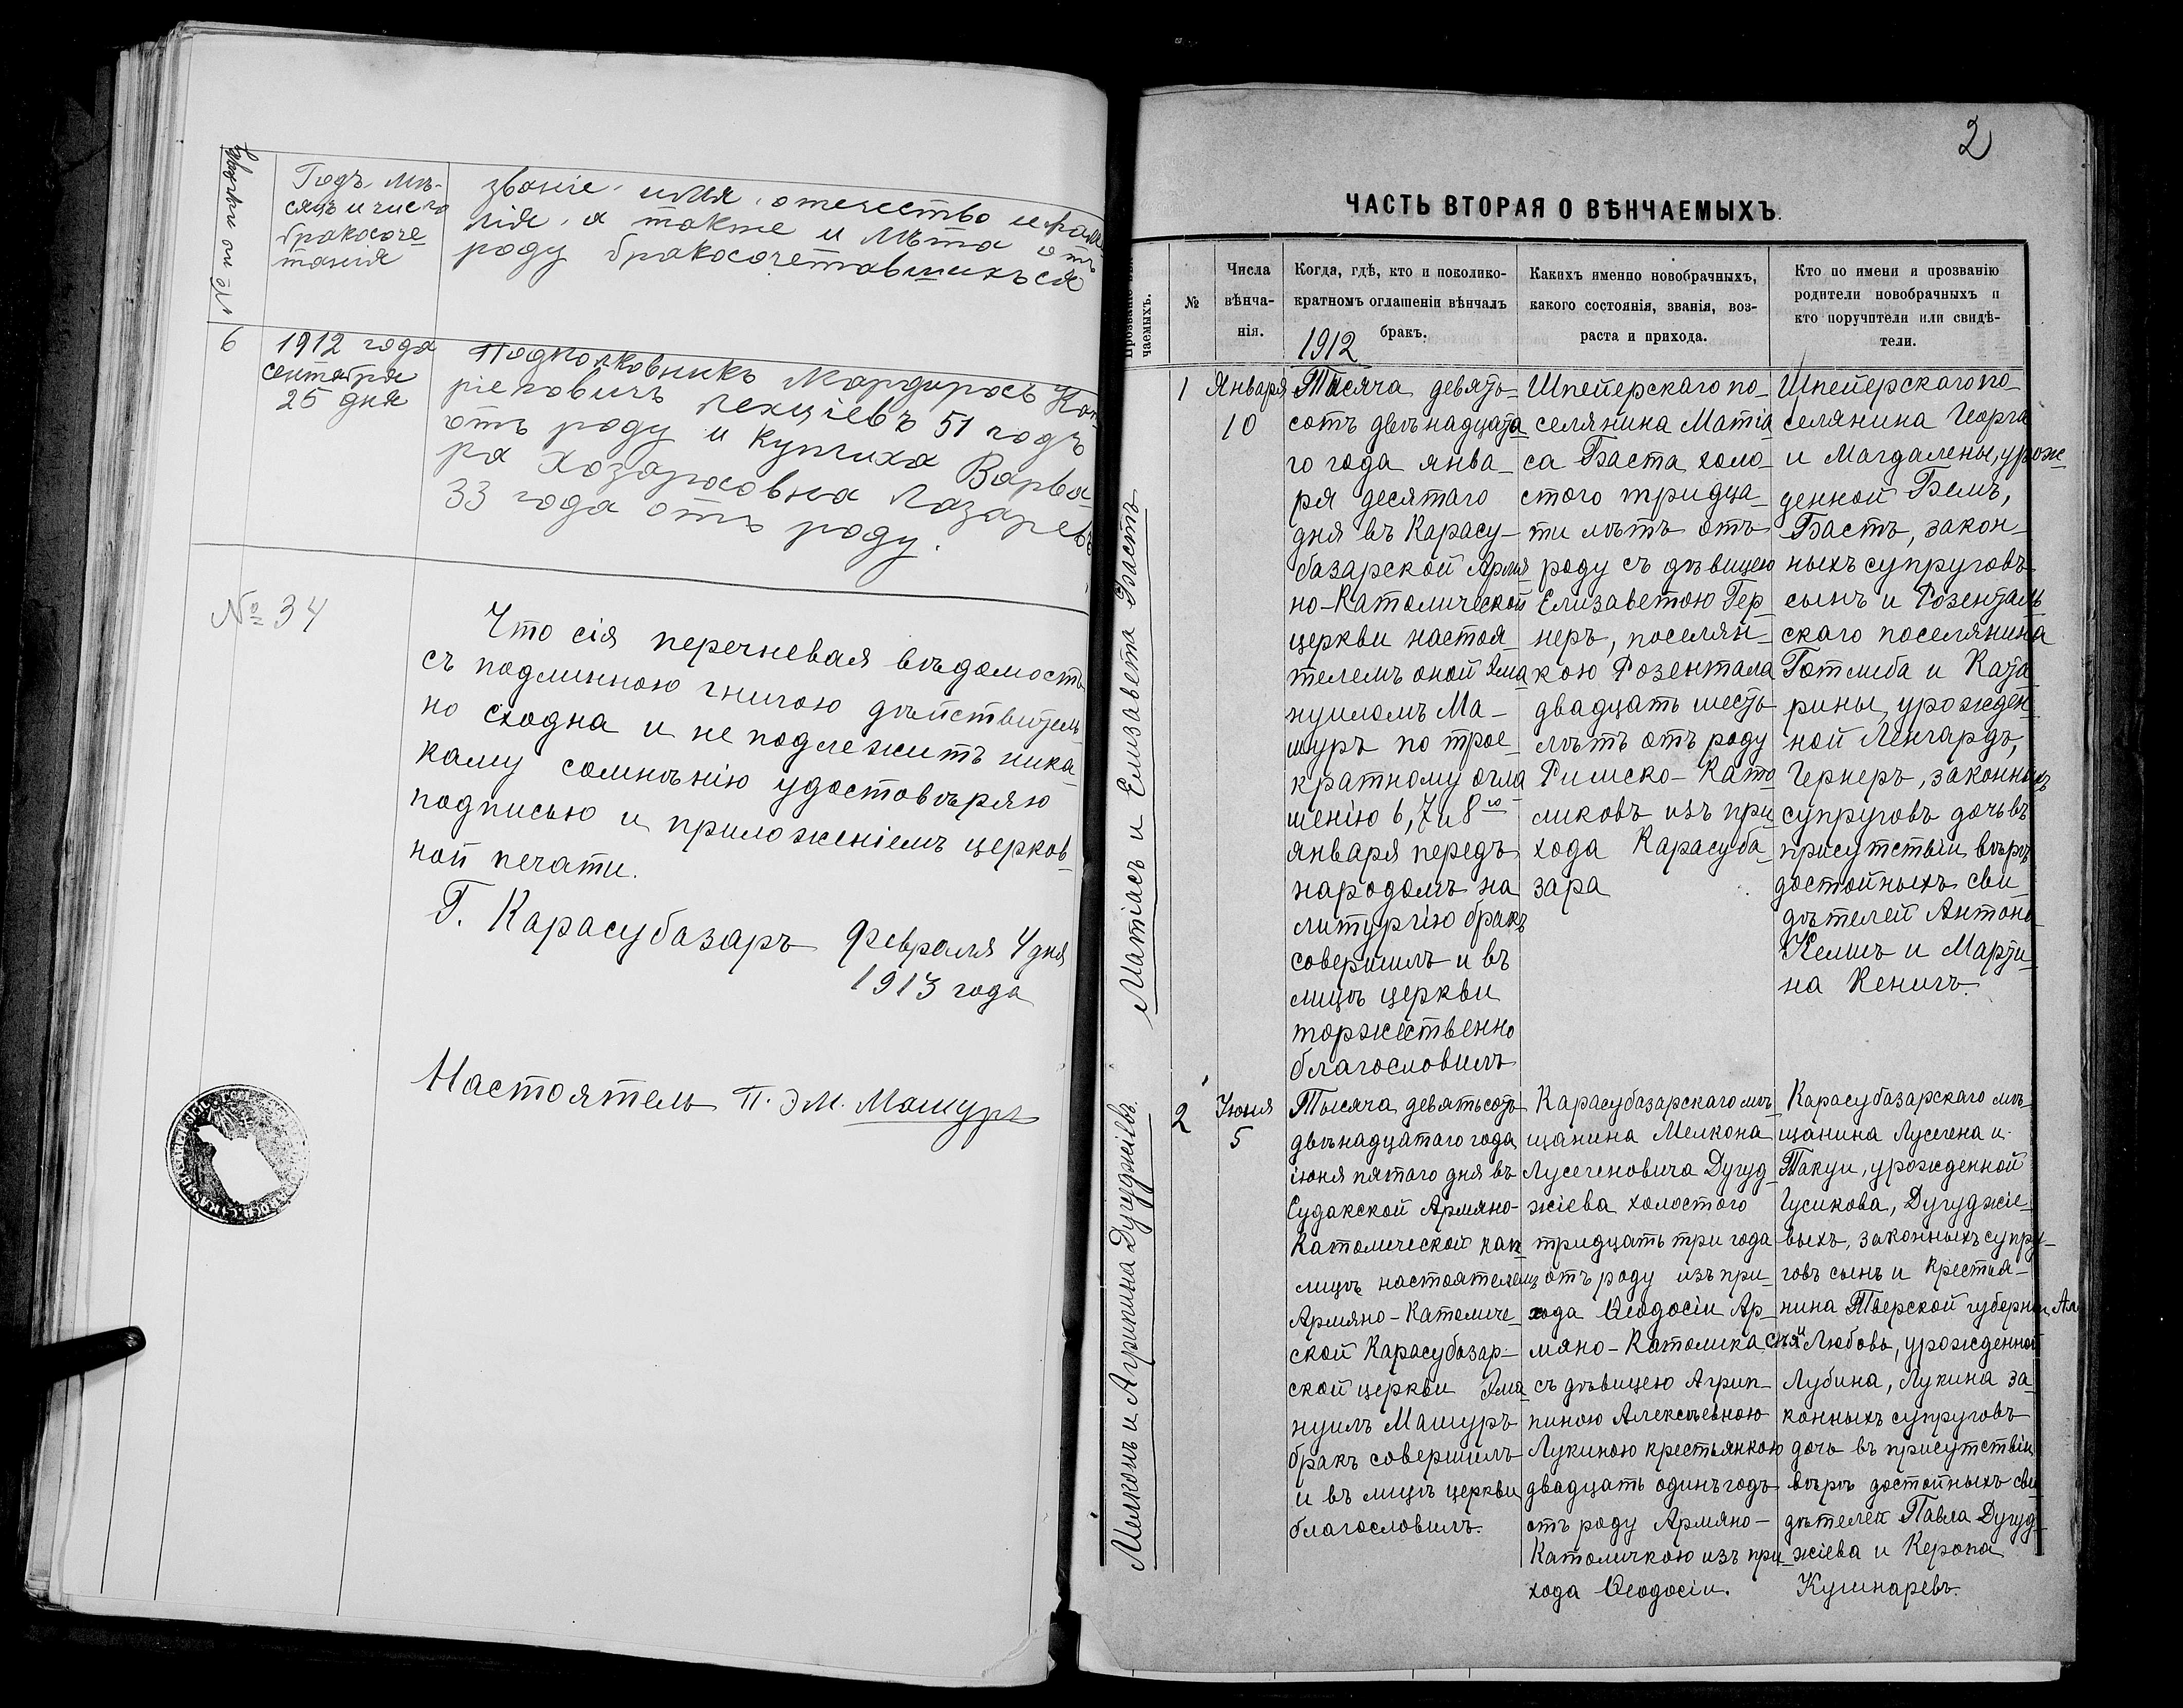 № по порядку
Годъ. мѣ-
сяцъ и число
бракосоче
танія
званіе. имя. отечество и фами
лія. а также и лѣта отъ
роду бракосочетавшихъся
6
1912 года
сентября
25 дня
Подполковникъ Мардиросъ
ріеловичъ 51 годъ
отъ роду и купчиха Варва-
ра Хозарасовна Лазарев
33 года отъ роду.
№ 34
Что сія перечневая вѣдомость
съ подлинною книгою дѣйствитель-
но сходна и не подлежитъ ника-
кому сомнѣнію удостовѣряю
подписью и приложеніемъ церков-
ной печати.
Г. Карасубазаръ Февраля 4 дня
1913 года
Настоятель П. Эм. Машуръ
2
ЧАСТЬ ВТОРАЯ О ВѢНЧАЕМЫХЪ.
чаемыхъ.
№
Числа
вѣнча-
нія.
Когда, гдѣ, кто и поколико-
кратномъ оглашеніи вѣнчалъ
бракъ.
1912
Какихъ именно новобрачныхъ,
какого состоянія, званія, воз-
раста и прихода.
Кто по имени и прозванію
родители новобрачныхъ и
кто поручители или свидѣ-
тели.
Матіасъ и Елизавета Бастъ
1
Января
10
Тысяча девять-
сотъ двѣнадцата
го года янва-
ря десятаго
дня въ Карасу-
базарской Армя
но-Католической
церкви настоя
телемъ оной Эма
нуиломъ Ма-
шуръ по трое-
кратному огла
шенію 6, 7 и 8го
января передъ
народомъ на
литургію бракъ
совершилъ и въ
лицѣ церкви
торжественно
благословилъ
Шпейерскаго по-
селянина Матіа
са Баста холо-
стого тридца-
ти лѣтъ отъ
роду съ дѣвицею
Елизаветою Гер-
неръ, поселян-
кою Розентала
двадцать шесть
лѣтъ отъ роду
Римско-Като
ликовъ изъ при
хода Карасуба-
зара
Шпейерскаго по-
селянина Георга
и Магдалены, урож-
денной Бемъ,
Бастъ, закон-
ныхъ супруговъ
сынъ и Розенталь-
скаго поселянина
Готлиба и Ката
рины, урожден-
ной Ленгардъ,
Гернеръ, законныхъ
супруговъ дочь въ
присутствіи вѣро
достойныхъ сви-
дѣтелей Антона
и Марти-
на Кенигъ.
Мелконъ и Агрипина Дугуджіевъ.
2
Іюня
5
Тысяча девятьсотъ
двѣнадцатаго года
іюня пятаго дня въ
Судакской Армяно-
Католической кап
лицѣ настоятелемъ
Армяно-Католиче-
ской Карасубазар-
ской церкви Эма
нуилъ Машуръ
бракъ совершилъ
и въ лицѣ церкви
благословилъ.
Карасубазарскаго мѣ-
щанина Мелкона
Лусегеновича Дугуд-
жіева холостого
тридцать три года
отъ роду изъ при-
хода Ѳеодосіи Ар-
мяно-Католика
съ дѣвицею Агрип-
пиною Алексѣевною
Лукиною крестьянкою
двадцать одинъ годъ
отъ роду Армяно-
Католичкою изъ при-
хода Ѳеодосіи.
Карасубазарскаго мѣ-
щанина Лусегена и
Такуи, урожденной
Гусикова, Дугуджіе-
выхъ, законныхъ супру-
говъ сынъ и крестья-
нина Тверской губерніи Але
ксѣя и Любовь, урожденной
Лубина, Лукина за-
конныхъ супруговъ
дочь въ присутствіи
вѣро достойныхъ сви-
дѣтелей Павла Дугуд-
жіева и Керопа
Кушнаревъ.